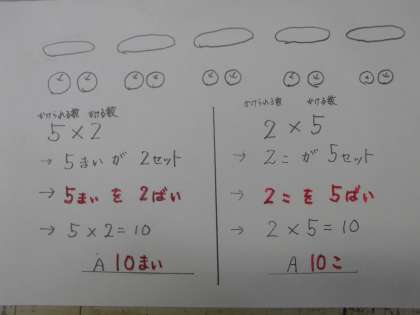 かけられる数 かける数
5×2
→ 5まいが2セット
→ 5まいを2ばい
→ 5×2=10
A 10まい
かけられる数 かける数
2×5
→ 2こが5セット
→ 2こを5ばい
→ 2×5=10
A 10こ